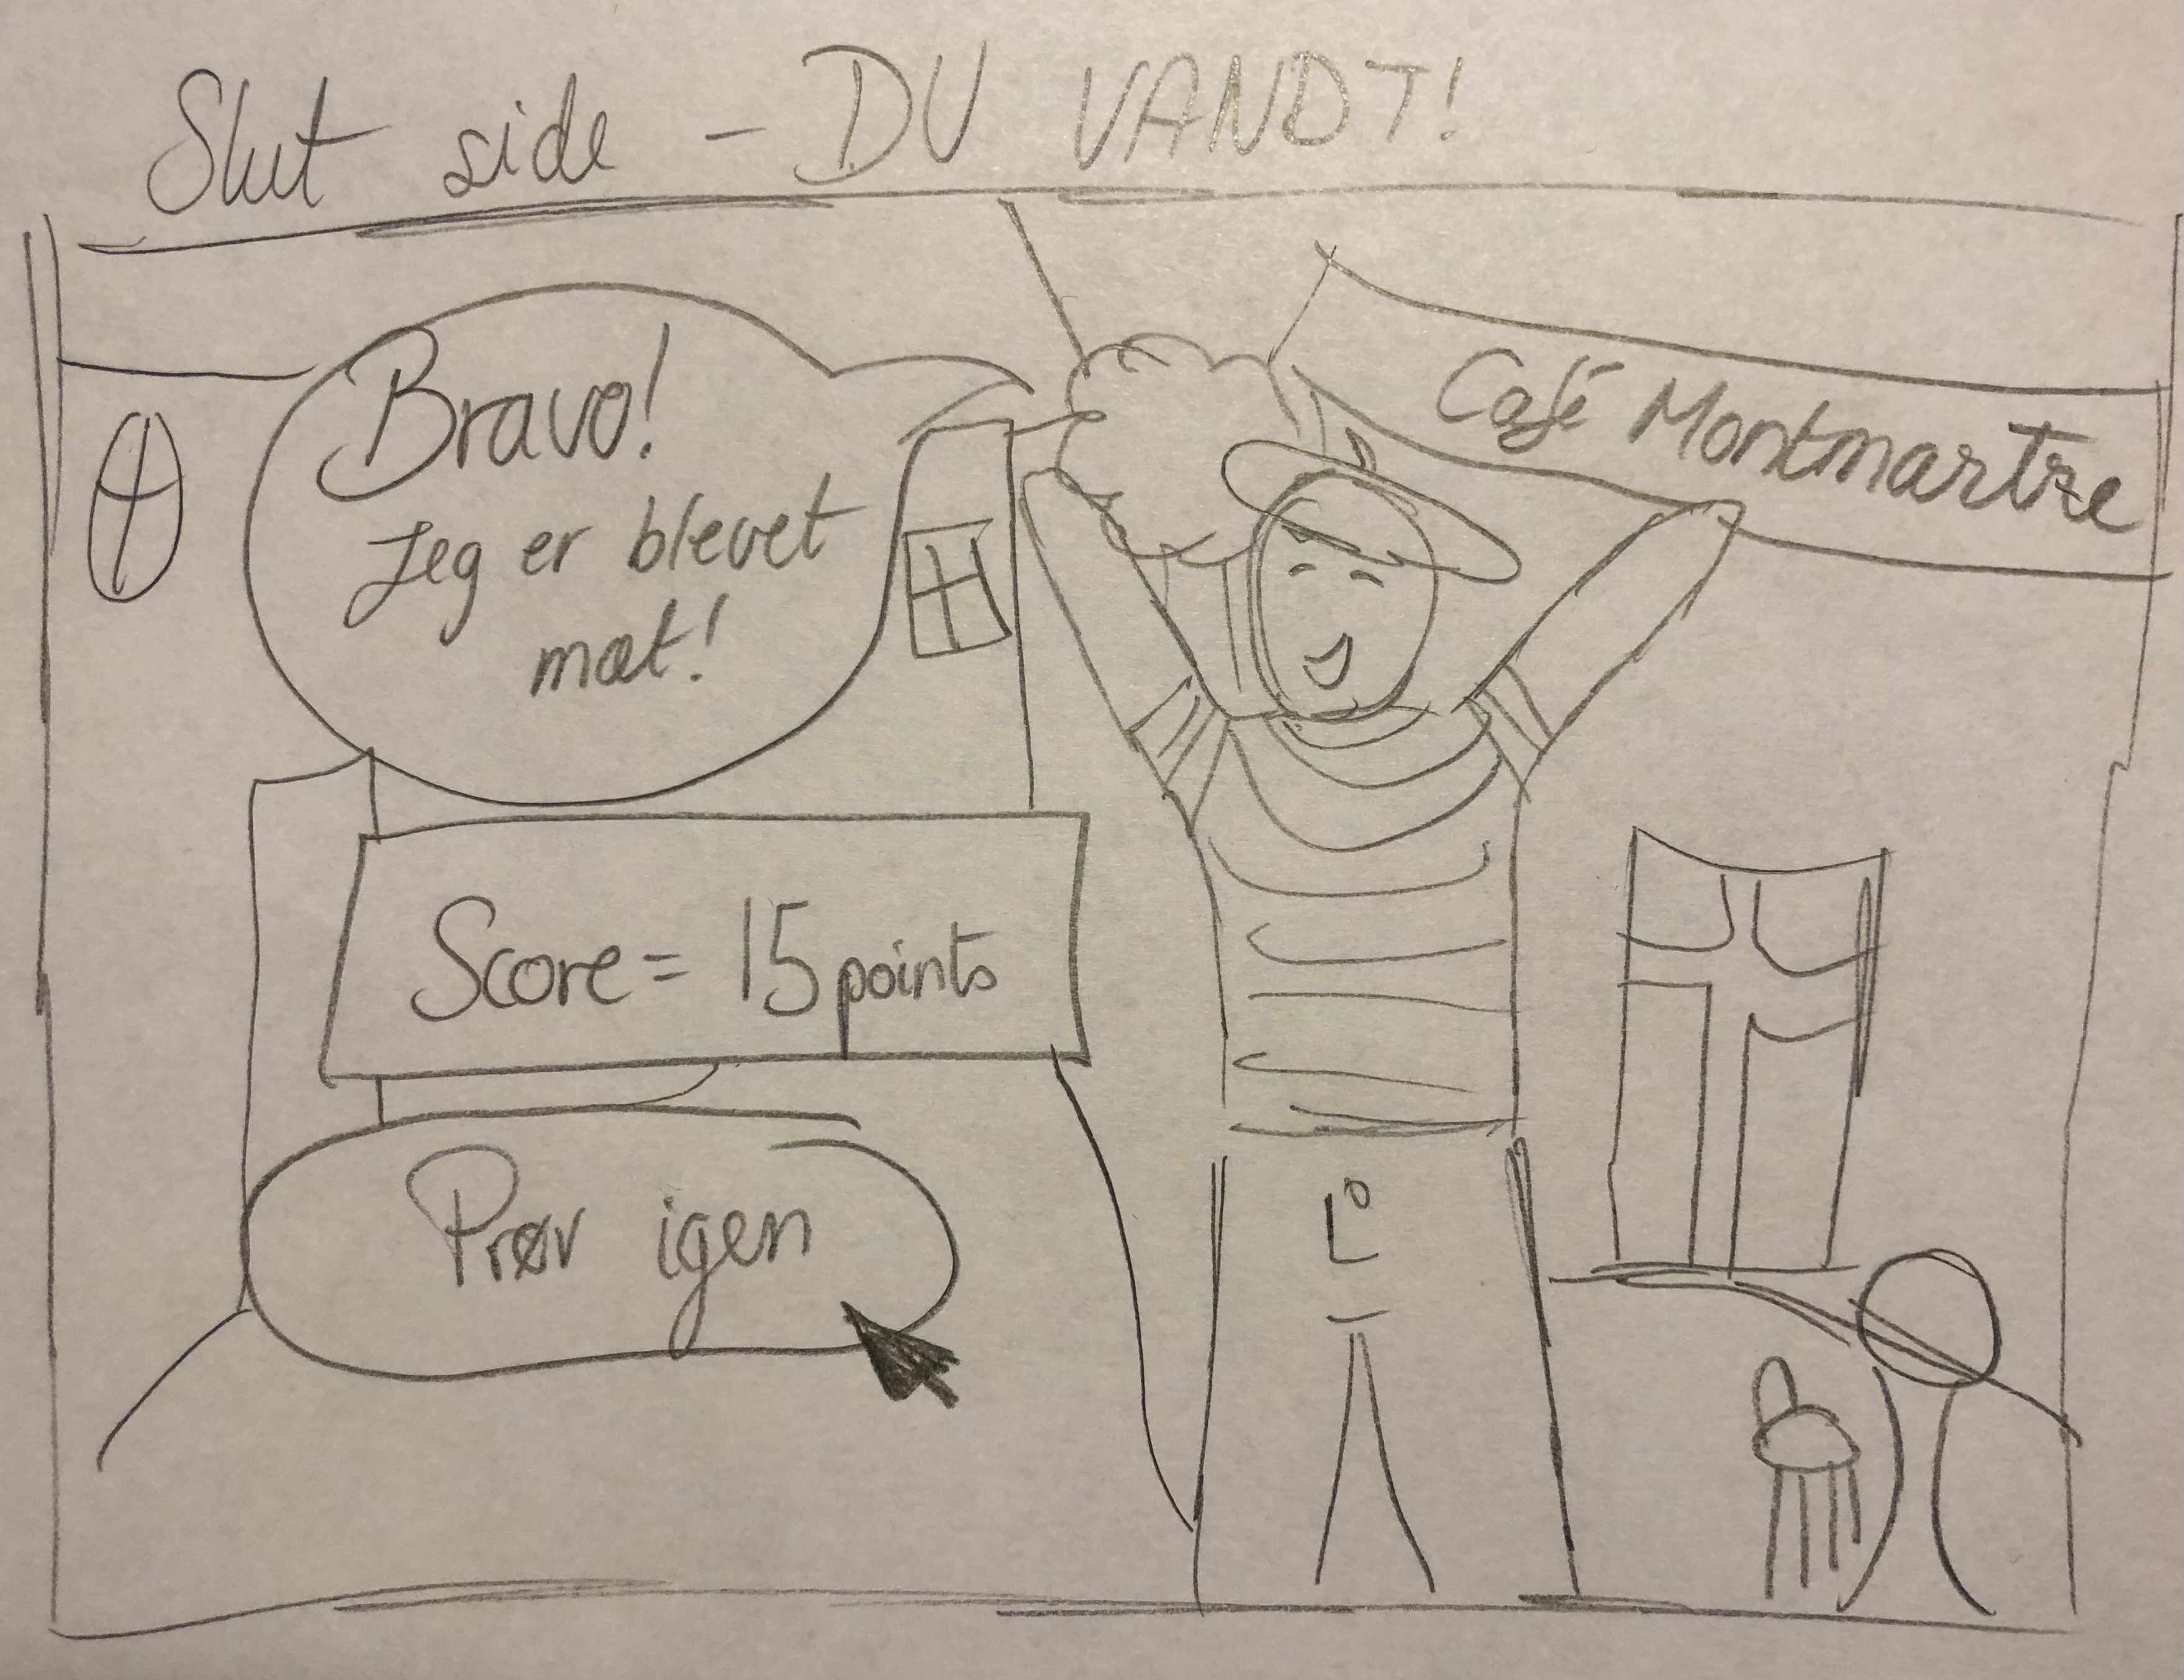 Slut side - DU VANDT!
Bravo!
Jeg er blevet
mæt!
Café Montmartre
Score = 15 points
Prøv igen